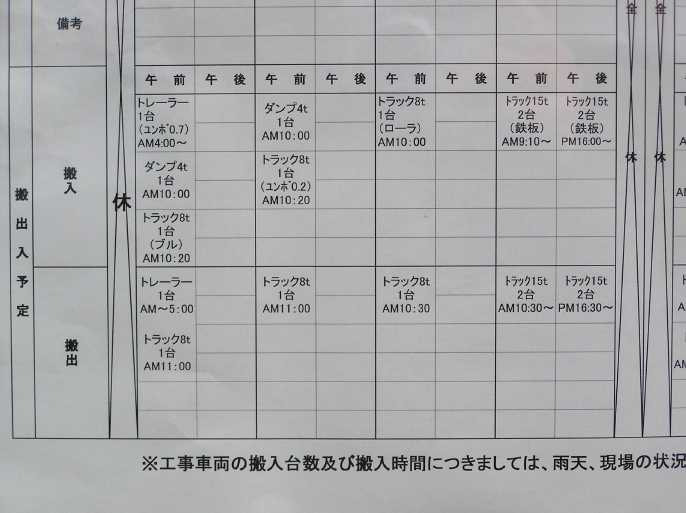 備考
全
全
午 前
午 後
午 前
午 後
午 前
午 後
午 前
午 前
搬出入予定
搬入
休
トレーラー
1台
(ユンボ0.7)
AM4:00～
ダンプ4t
1台
AM10:00
トラック8t
1台
(ローラ)
AM10:00
トラック15t
2台
(鉄板)
AM9:10～
トラック15t
2台
(鉄板)
PM16:00～
休
休
ダンプ4t
1台
AM10:00
トラック8t
1台
(ユンボ0.2)
AM10:20
トラック8t
1台
(ブル)
AM10:20
搬出
トレーラー
1台
AM～5:00
トラック8t
1台
AM11:00
トラック8t
1台
AM10:30
トラック15t
2台
AM10:30～
トラック15t
2台
PM16:30～
トラック8t
1台
AM11:00
※工事車両の搬入台数及び搬入時間につきましては、雨天、現場の状況